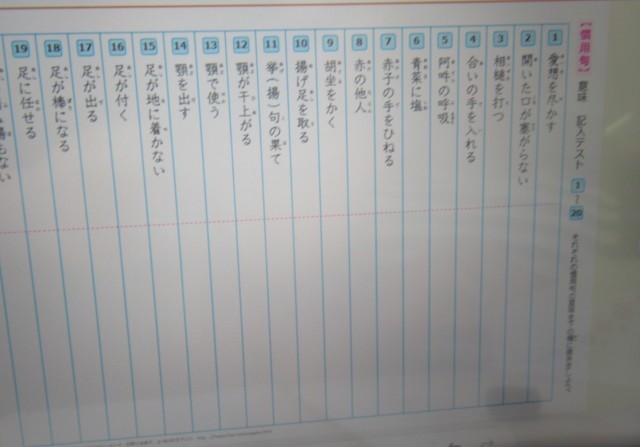 【慣用句】意味 記入テスト 1～20
それぞれの慣用句の意味を下の欄に書きましょう。
1 愛想を尽かす
2 開いた口が塞がらない
3 相槌を打つ
4 合いの手を入れる
5 阿吽の呼吸
6 青菜に塩
7 赤子の手をひねる
8 赤の他人
9 胡坐をかく
10 揚げ足を取る
11 挙（揚）句の果て
12 顎が干上がる
13 顎で使う
14 顎を出す
15 足が地に着かない
16 足が付く
17 足が出る
18 足が棒になる
19 足に任せる